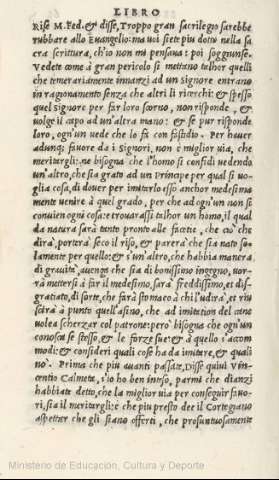 LIBRO
Rise M. Fed. & disse, Troppo gran sacrilegio sarebbe
rubbare allo Euangelio: ma voi siete piu dotto nella sa
cra scrittura, ch'io non mi pensaua: poi soggiunse.
Vedete come à gran pericolo si mettano talhor quelli
che temerariamente innanzi ad un Signore entrano
in ragionamento senza che altri li ricerchi: & spesso
quel Signore per far loro scorno, non risponde, &
volge il capo ad un'altra mano: & se pur risponde
loro, ogn'un vede che lo fà con fastidio. Per hauer
adunq; fauore da i Signori, non è miglior via, che
meritargli: ne bisogna che l'homo si confidi vedendo
un'altro, che sia grato ad un Principe per qual si vo
glia cosa, di douer per imitarlo esso anchor medesima
mente venire à quel grado, per che ad ogn'un non si
conuien ogni cosa: e trouarassi talhor un homo, il qual
da natura sarà tanto pronto alle facetie, che ciò che
dirà, porterà seco il riso, & parerà che sia nato so
lamente per quello: & s'un'altro, che habbia manera
di grauità, auenga che sia di bonissimo ingegno, vor
rà mettersi à far il medesimo, sarà freddissimo, et dis
gratiato, di sorte, che farà stomaco à chi l'udirà, et riu
scirà à punto quell'asino, che ad imitation del cane
volea scherzar col patrone: però bisogna che ogn'un
conosca se stesso, & le forze sue: & à quello s'accom
modi: & consideri quali cose ha da imitare, & quali
nò. Prima che piu auanti passate, Disse quiui Vin-
centio Calmeta, s'io ho ben inteso, parmi che dianzi
habbiate detto, che la miglior via per conseguir fauo-
ri, sia il meritargli: e che piu presto dee il Cortegiano
aspettar che gli siano offerti, che prosuntuosamente
Ministerio de Educación, Cultura y Deporte